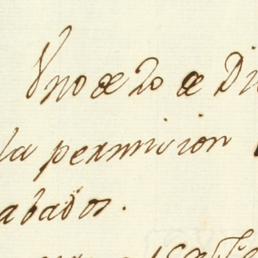 Uno de 20 de Di
la permision
abados.